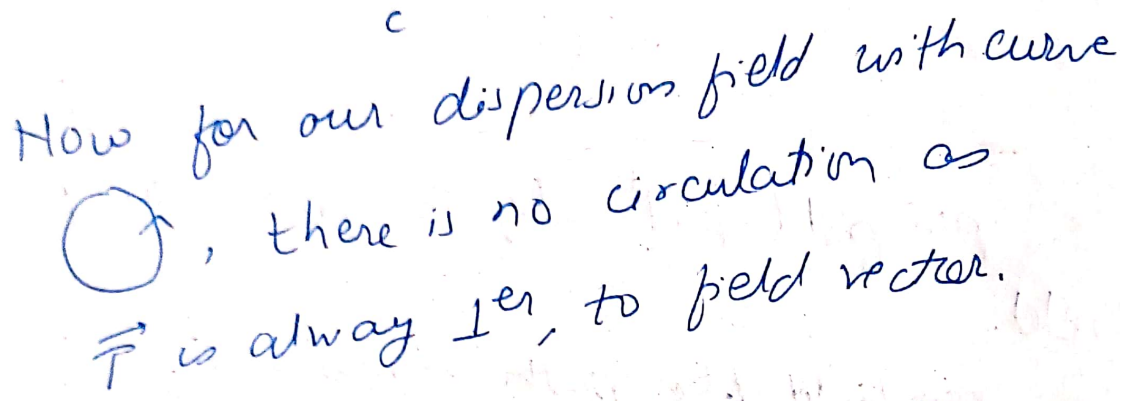 C
Now for our dispersion field with curve
, there is no circulation as
T⃗ is alway ⊥er, to field vector.